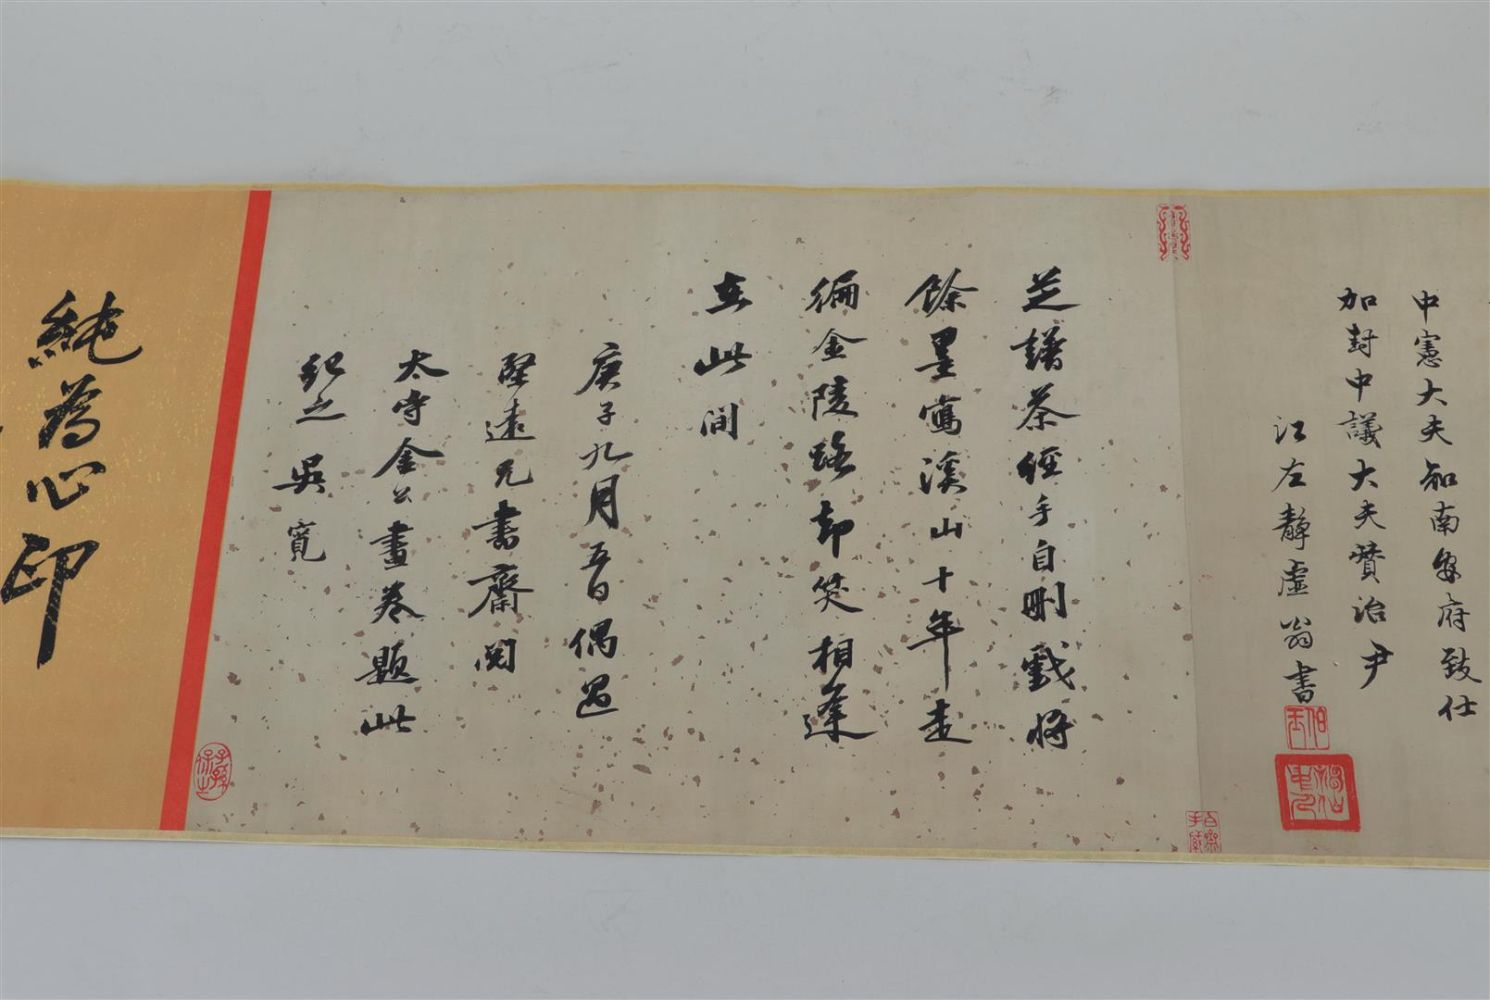 中憲大夫知南安府致仕
加封中議大夫贊治尹
江左靜虛翁書
芝譜茶經手自刪戲將
餘墨寫溪山十年走
徧金陵路却笑相逢
在此間
庚子九月五日偶過
堅遠兄書齋閱
太守金公畫卷題此
紀之 吳寬
純為心印